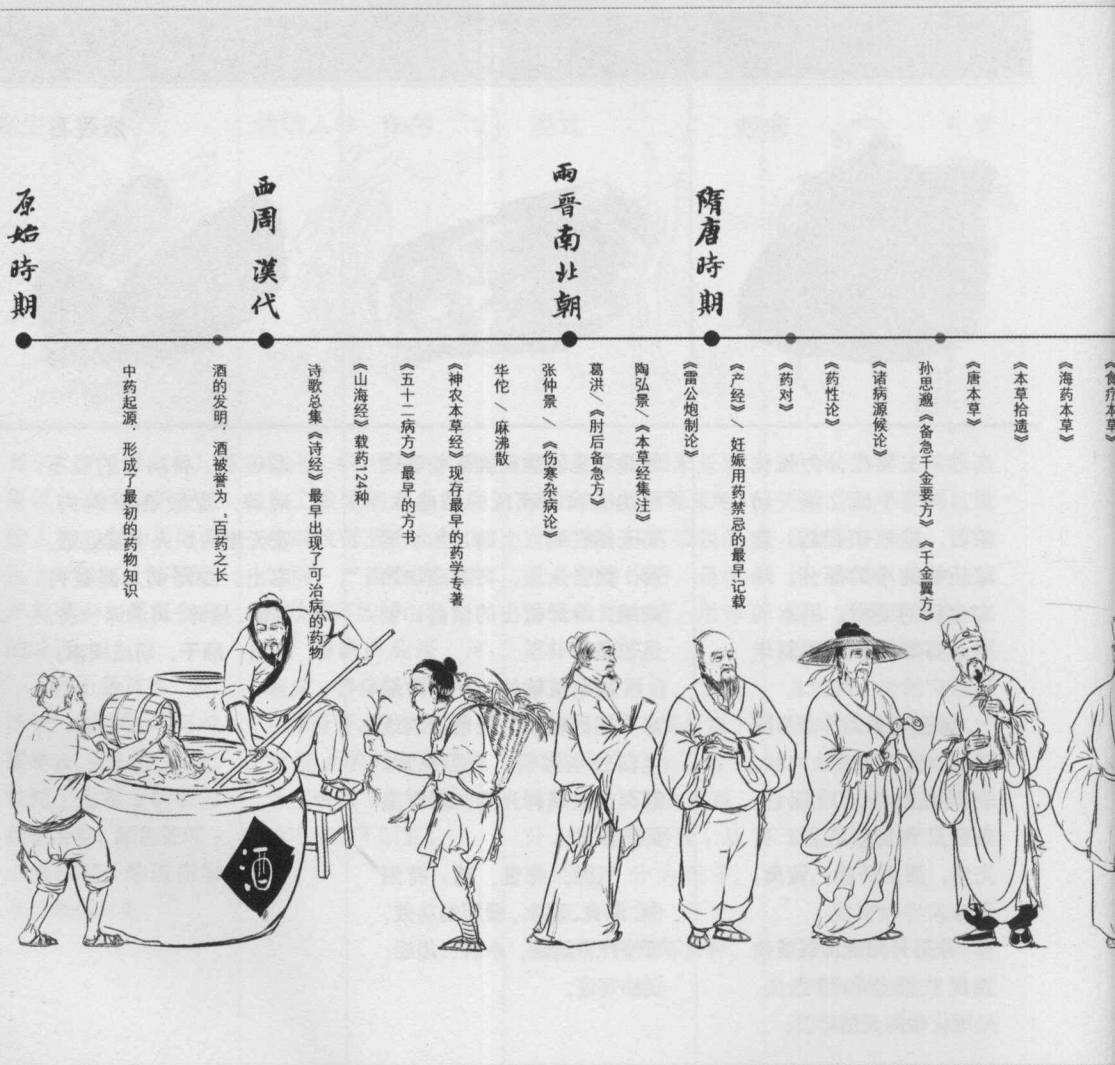 原始時期
西周 漢代
兩晉南北朝
隋唐時期
中药起源，形成了最初的药物知识
酒的发明 酒被誉为 百药之长
诗歌总集《诗经》最早出现了可治病的药物
《山海经》载药124种
《五十二病方》最早的方书
《神农本草经》现存最早的药学专著
华佗 / 麻沸散
张仲景 / 《伤寒杂病论》
葛洪/《肘后备急方》
陶弘景/《本草经集注》
《雷公炮制论》
《产经》/ 妊娠用药禁忌的最早记载
《药对》
《药性论》
《诸病源候论》
孙思邈《备急千金要方》《千金翼方》
《唐本草》
《本草拾遗》
《海药本草》
《食疗本草》
酒